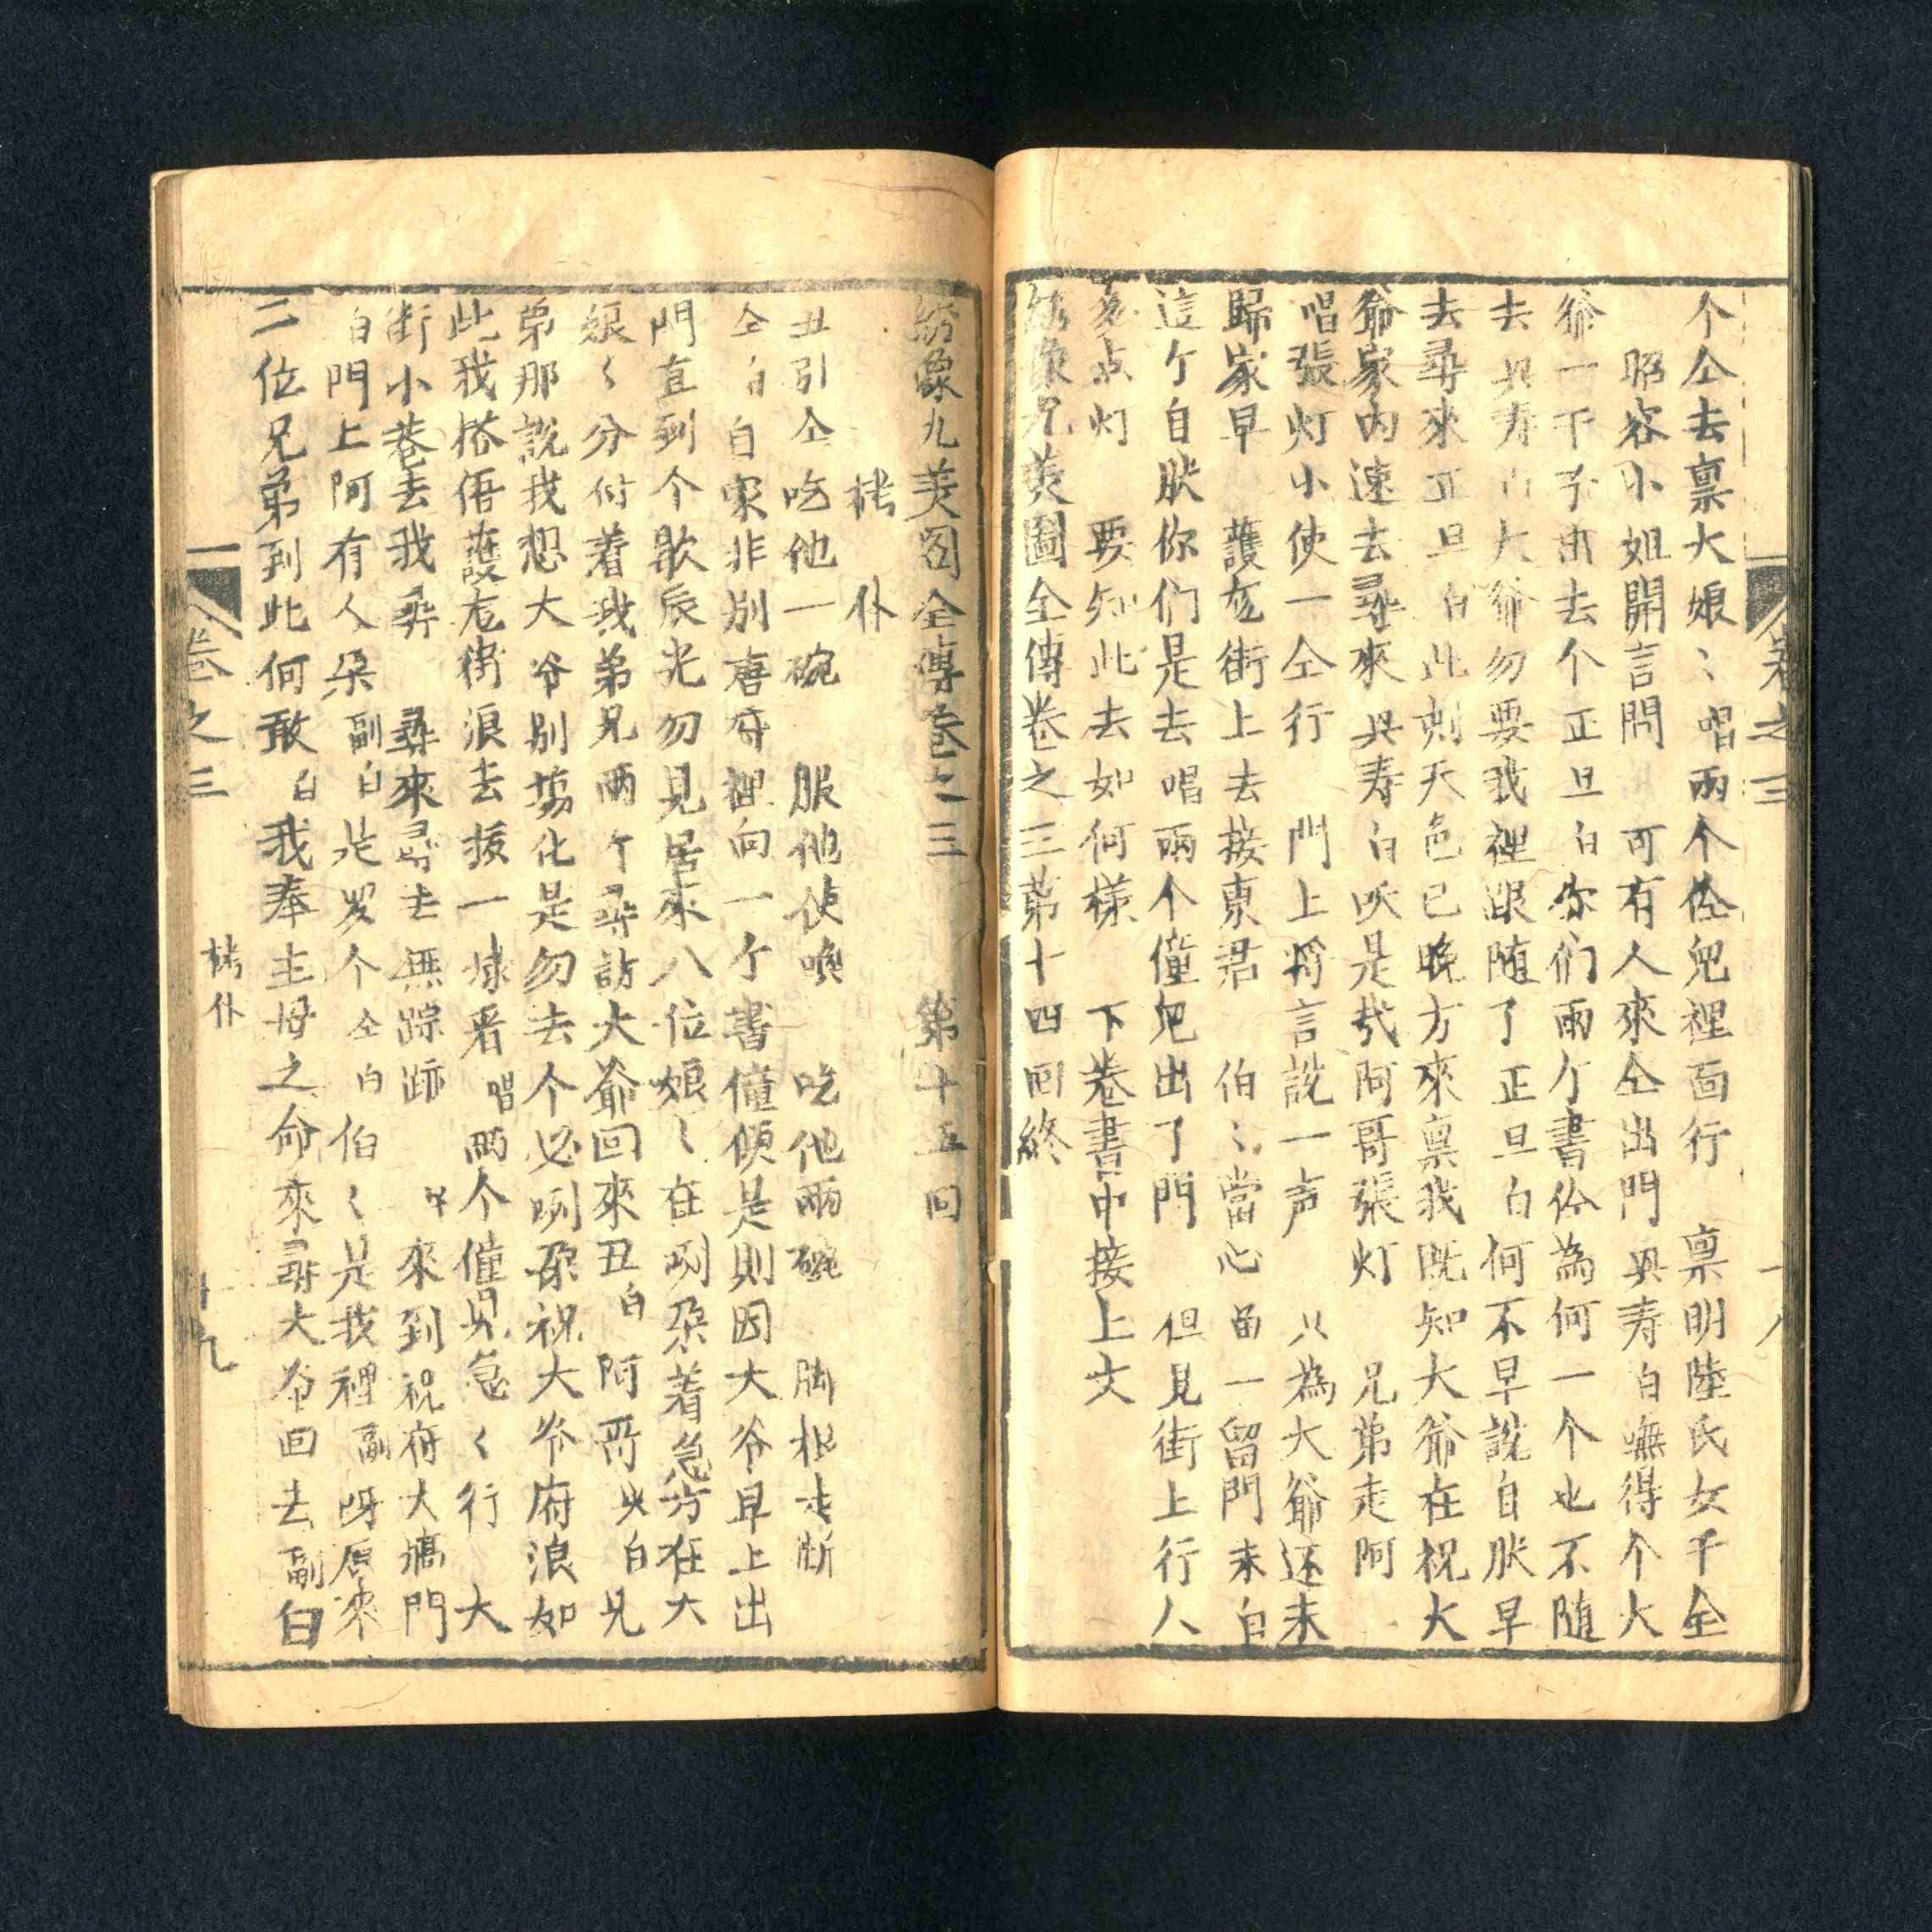 个仝去禀大娘〻唱兩个侄兒裡面行 禀明陸氏女千全
昭容小姐開言問 可有人來仝出門 興寿白嘸得个大
爺一干子出去个正旦白你们兩个書僮為何一个也不随
去興寿白大爺勿要我裡跟随了正旦白何不早說自肰早
去尋來正旦白此刻天色已晚方來禀我既知大爺在祝大
爺家内速去尋來興寿白吹是哉阿哥張灯 兄弟走阿
唱張灯小使一仝行 門上將言說一声 只為大爺还未
歸家早 護龙街上去接東君 伯〻當心留一留門未白
這个自肰你们是去唱兩个僮兒出了門 但見街上行人
多点灯 要知此去如何樣 下卷書中接上文
綉像九美圖全傳卷之三第十四回終
卷之三
十八
綉像九美図全傳卷之三 第十五回
拷 仆
丑引仝吃他一碗 服他使喚 吃他兩碗 脚根走断
仝白自家非别唐府裡向一个書僮便是則因大爷早上出
門直到个歇辰光勿見居來八位娘〻在咧朶着急方在大
娘〻分付着我弟兄兩个尋訪大爺回來丑白阿哥 白兄
弟那說我想大爷别場化是勿去个必咧朶祝大爷府浪如
此我搭俉護龙街浪去援一 看唱兩个僮兒急〻行 大
街小巷去我尋 尋來尋去無踪跡 來到祝府大牆門
白門上阿有人朶副白是罗个仝白伯〻是我裡副呀原來
二位兄弟到此何敢白我奉主母之命來尋大爷回去副白
卷之三
拷仆
十九